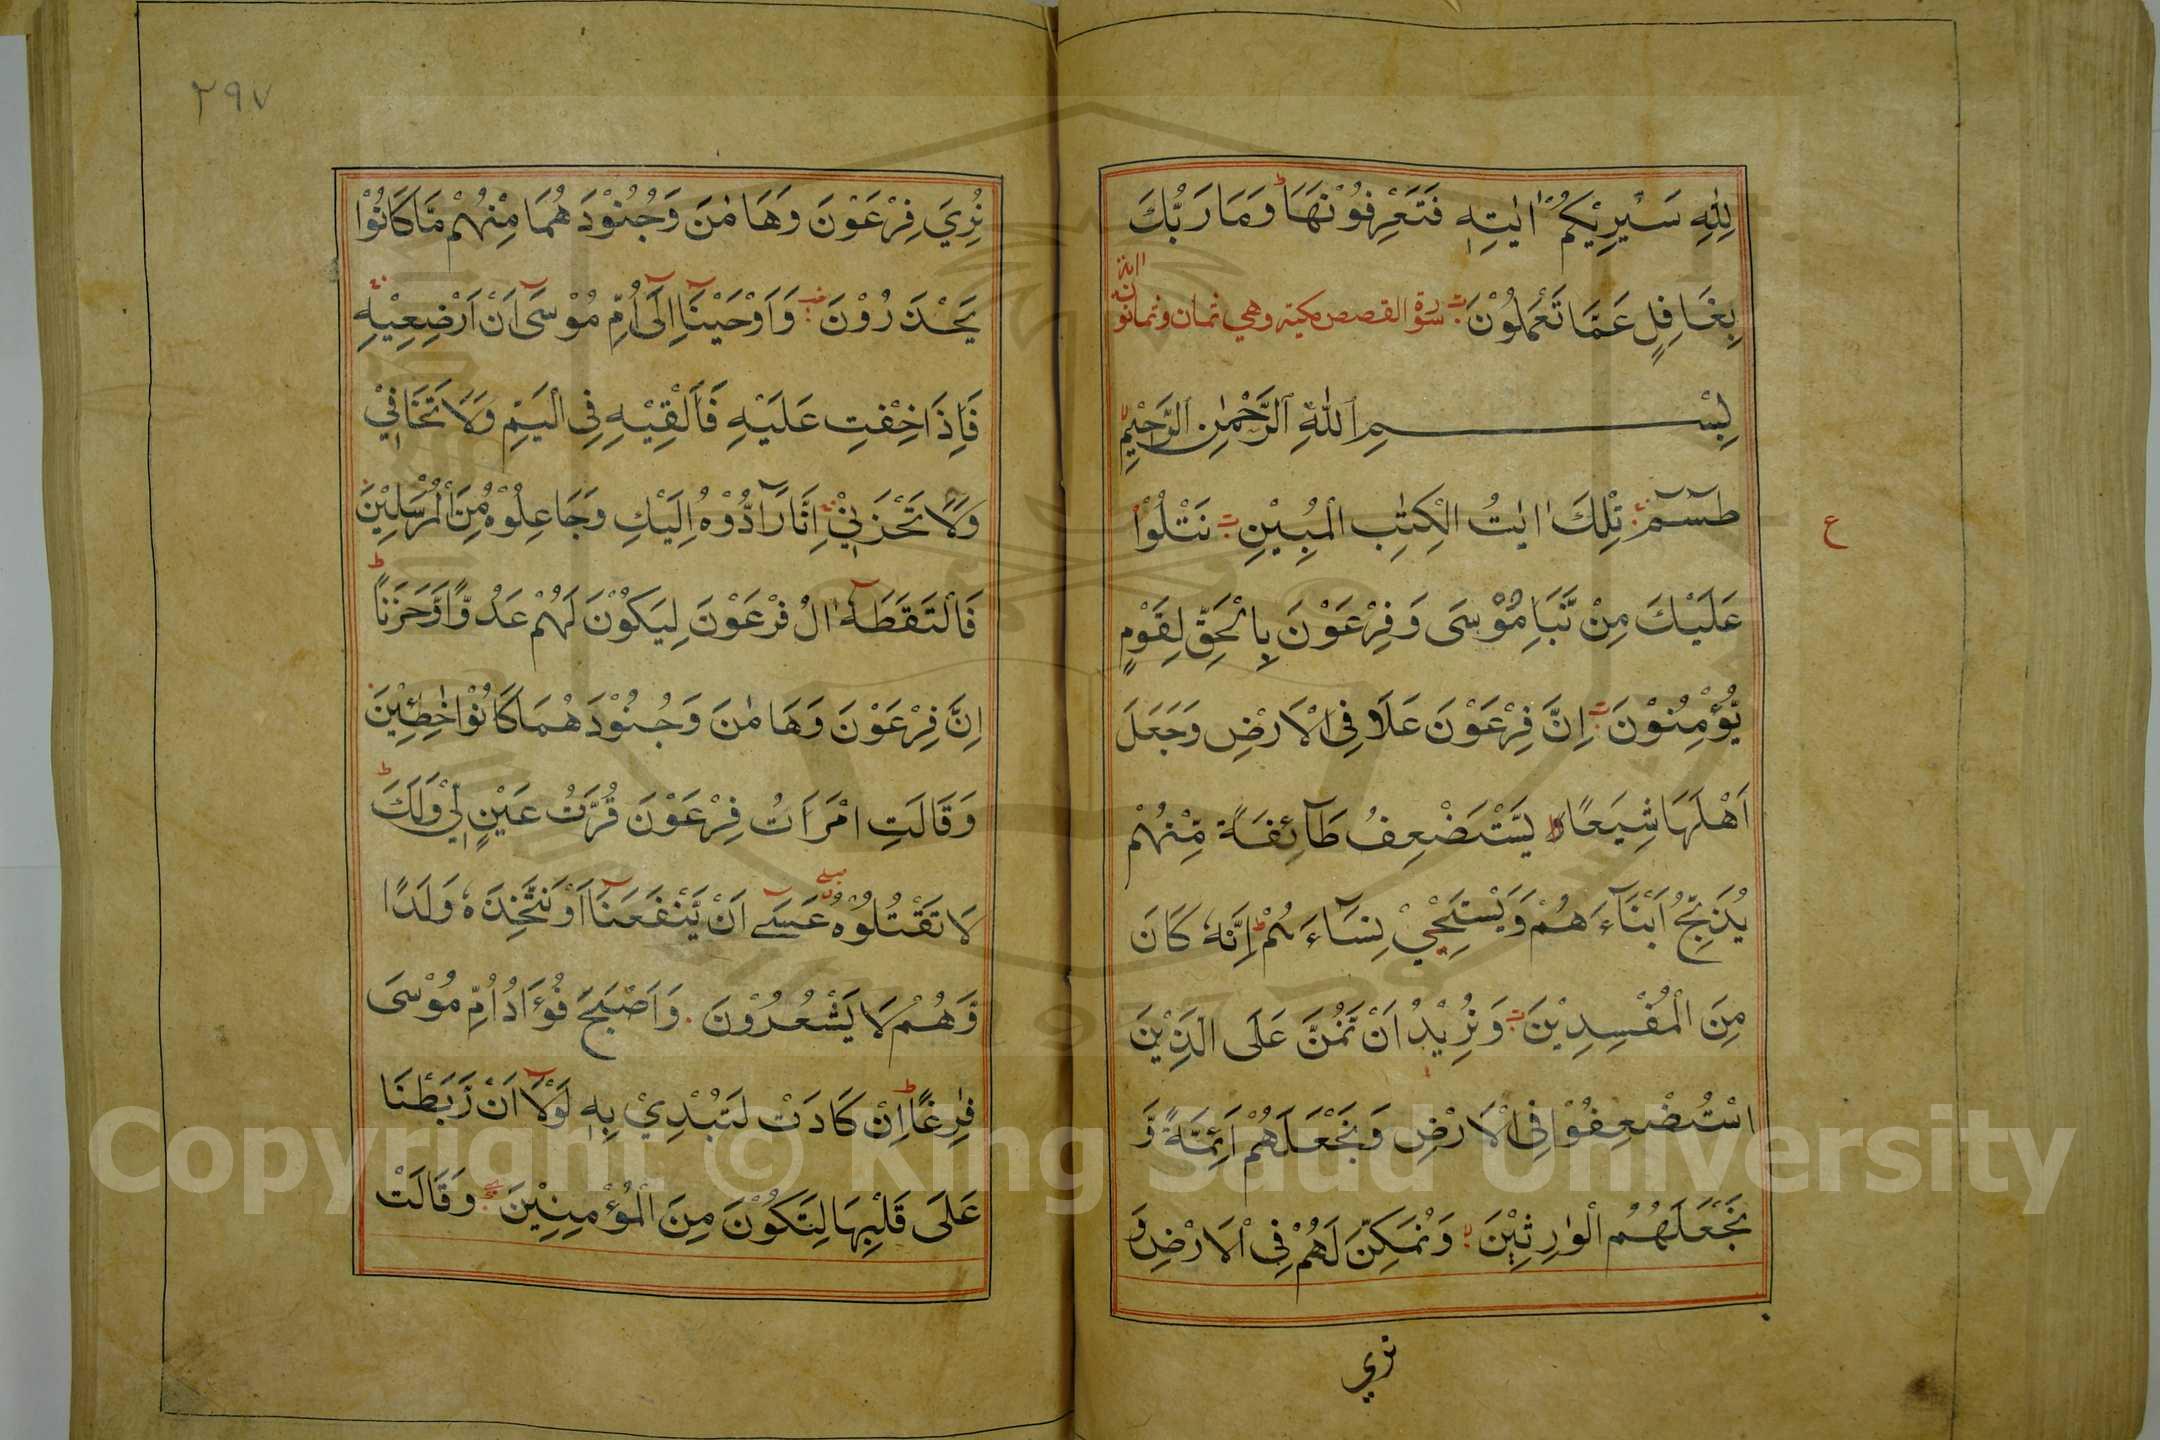 لِلّٰهِ سَيُرِيْكُمْ اٰيٰتِهٖ فَتَعْرِفُوْنَهَا وَمَا رَبُّكَ
بِغَافِلٍ عَمَّا تَعْمَلُوْنَ سورة القصص مكية وهي ثمان وثمانون اية
بِسْمِ اللّٰهِ الرَّحْمٰنِ الرَّحِيْمِ
طٰسٓمّٓ تِلْكَ اٰيٰتُ الْكِتٰبِ الْمُبِيْنِ نَتْلُوْا
ع
عَلَيْكَ مِنْ نَّبَاِ مُوْسٰى وَفِرْعَوْنَ بِالْحَقِّ لِقَوْمٍ
يُّؤْمِنُوْنَ اِنَّ فِرْعَوْنَ عَلَا فِى الْاَرْضِ وَجَعَلَ
اَهْلَهَا شِيَعًا يَّسْتَضْعِفُ طَآئِفَةً مِّنْهُمْ
يُذَبِّحُ اَبْنَآءَ هُمْ وَيَسْتَحْيٖ نِسَآءَ هُمْ اِنَّهٗ كَانَ
مِنَ الْمُفْسِدِيْنَ وَنُرِيْدُ اَنْ نَّمُنَّ عَلَى الَّذِيْنَ
اسْتُضْعِفُوْا فِى الْاَرْضِ وَنَجْعَلَهُمْ اَئِمَّةً وَّ
نَجْعَلَهُمُ الْوٰرِثِيْنَ وَنُمَكِّنَ لَهُمْ فِى الْاَرْضِ وَ
نري
٢٩٧
نُرِيَ فِرْعَوْنَ وَهَامٰنَ وَجُنُوْدَ هُمَا مِنْهُمْ مَّا كَانُوْا
يَحْذَرُوْنَ وَاَوْحَيْنَآ اِلٰٓى اُمِّ مُوْسٰٓى اَنْ اَرْضِعِيْهِ
فَاِذَا خِفْتِ عَلَيْهِ فَاَلْقِيْهِ فِى الْيَمِّ وَلَا تَخَافِيْ
وَلَا تَحْزَنِيْ اِنَّا رَآدُّوْهُ اِلَيْكِ وَجَاعِلُوْهُ مِنَ الْمُرْسَلِيْنَ
فَالْتَقَطَهٗٓ اٰلُ فِرْعَوْنَ لِيَكُوْنَ لَهُمْ عَدُوًّا وَّحَزَنًا
اِنَّ فِرْعَوْنَ وَهَامٰنَ وَجُنُوْدَ هُمَا كَانُوْا خٰطِئِيْنَ
وَقَالَتِ امْرَاَتُ فِرْعَوْنَ قُرَّتُ عَيْنٍ لِّيْ وَلَكَ
لَا تَقْتُلُوْهُ عَسٰٓى اَنْ يَّنْفَعَنَآ اَوْ نَتَّخِذَهٗ وَلَدًا
وَّهُمْ لَا يَشْعُرُوْنَ وَاَصْبَحَ فُؤَادُ اُمِّ مُوْسٰى
فٰرِغًا اِنْ كَادَتْ لَتُبْدِيْ بِهٖ لَوْلَآ اَنْ رَّبَطْنَا
عَلٰى قَلْبِهَا لِتَكُوْنَ مِنَ الْمُؤْمِنِيْنَ وَقَالَتْ
Copyright © King Saud University